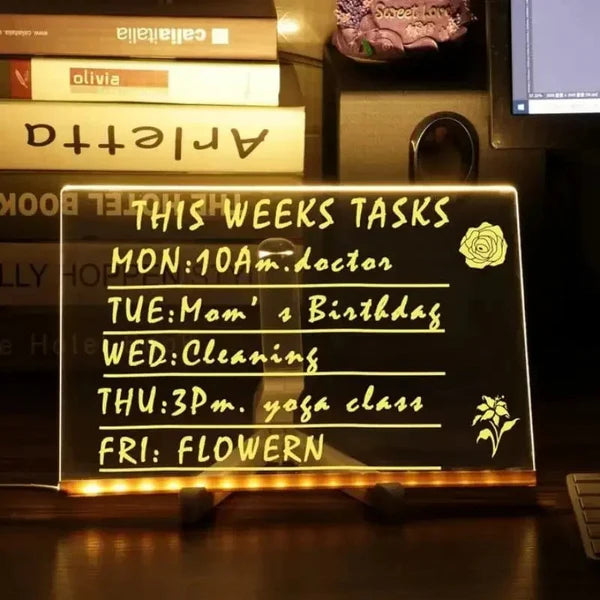 callaitalia
olivia
Arletta
THE HOTEL BOOK
LLY HOPPEN STY
e Hote
Sweet Love
THIS WEEKS TASKS
MON:10Am.doctor
TUE:Mom's Birthday
WED:Cleaning
THU:3Pm. yoga class
FRI: FLOWERN